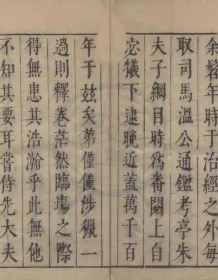 余髫年時于治經之外每
取司馬溫公通鑑考亭朱
夫子綱目時爲番閱上自
宓犧下逮晚近蓋萬千百
年于玆矣弟僅僅涉獵一
過則釋卷茫然臨塲之際
得無患其浩瀚乎此無他
不知其要耳嘗侍先大夫